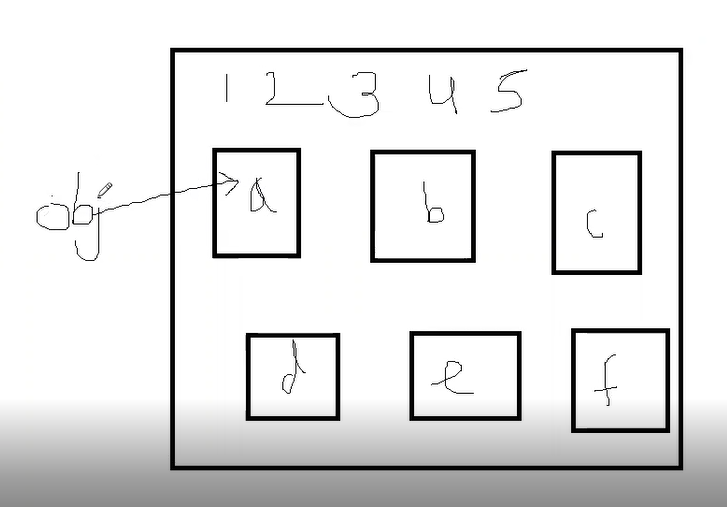 1 2 3 4 5
obj a b c
d e f